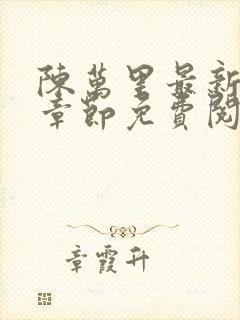 陳萬里最新
章節免費閱
章霞升